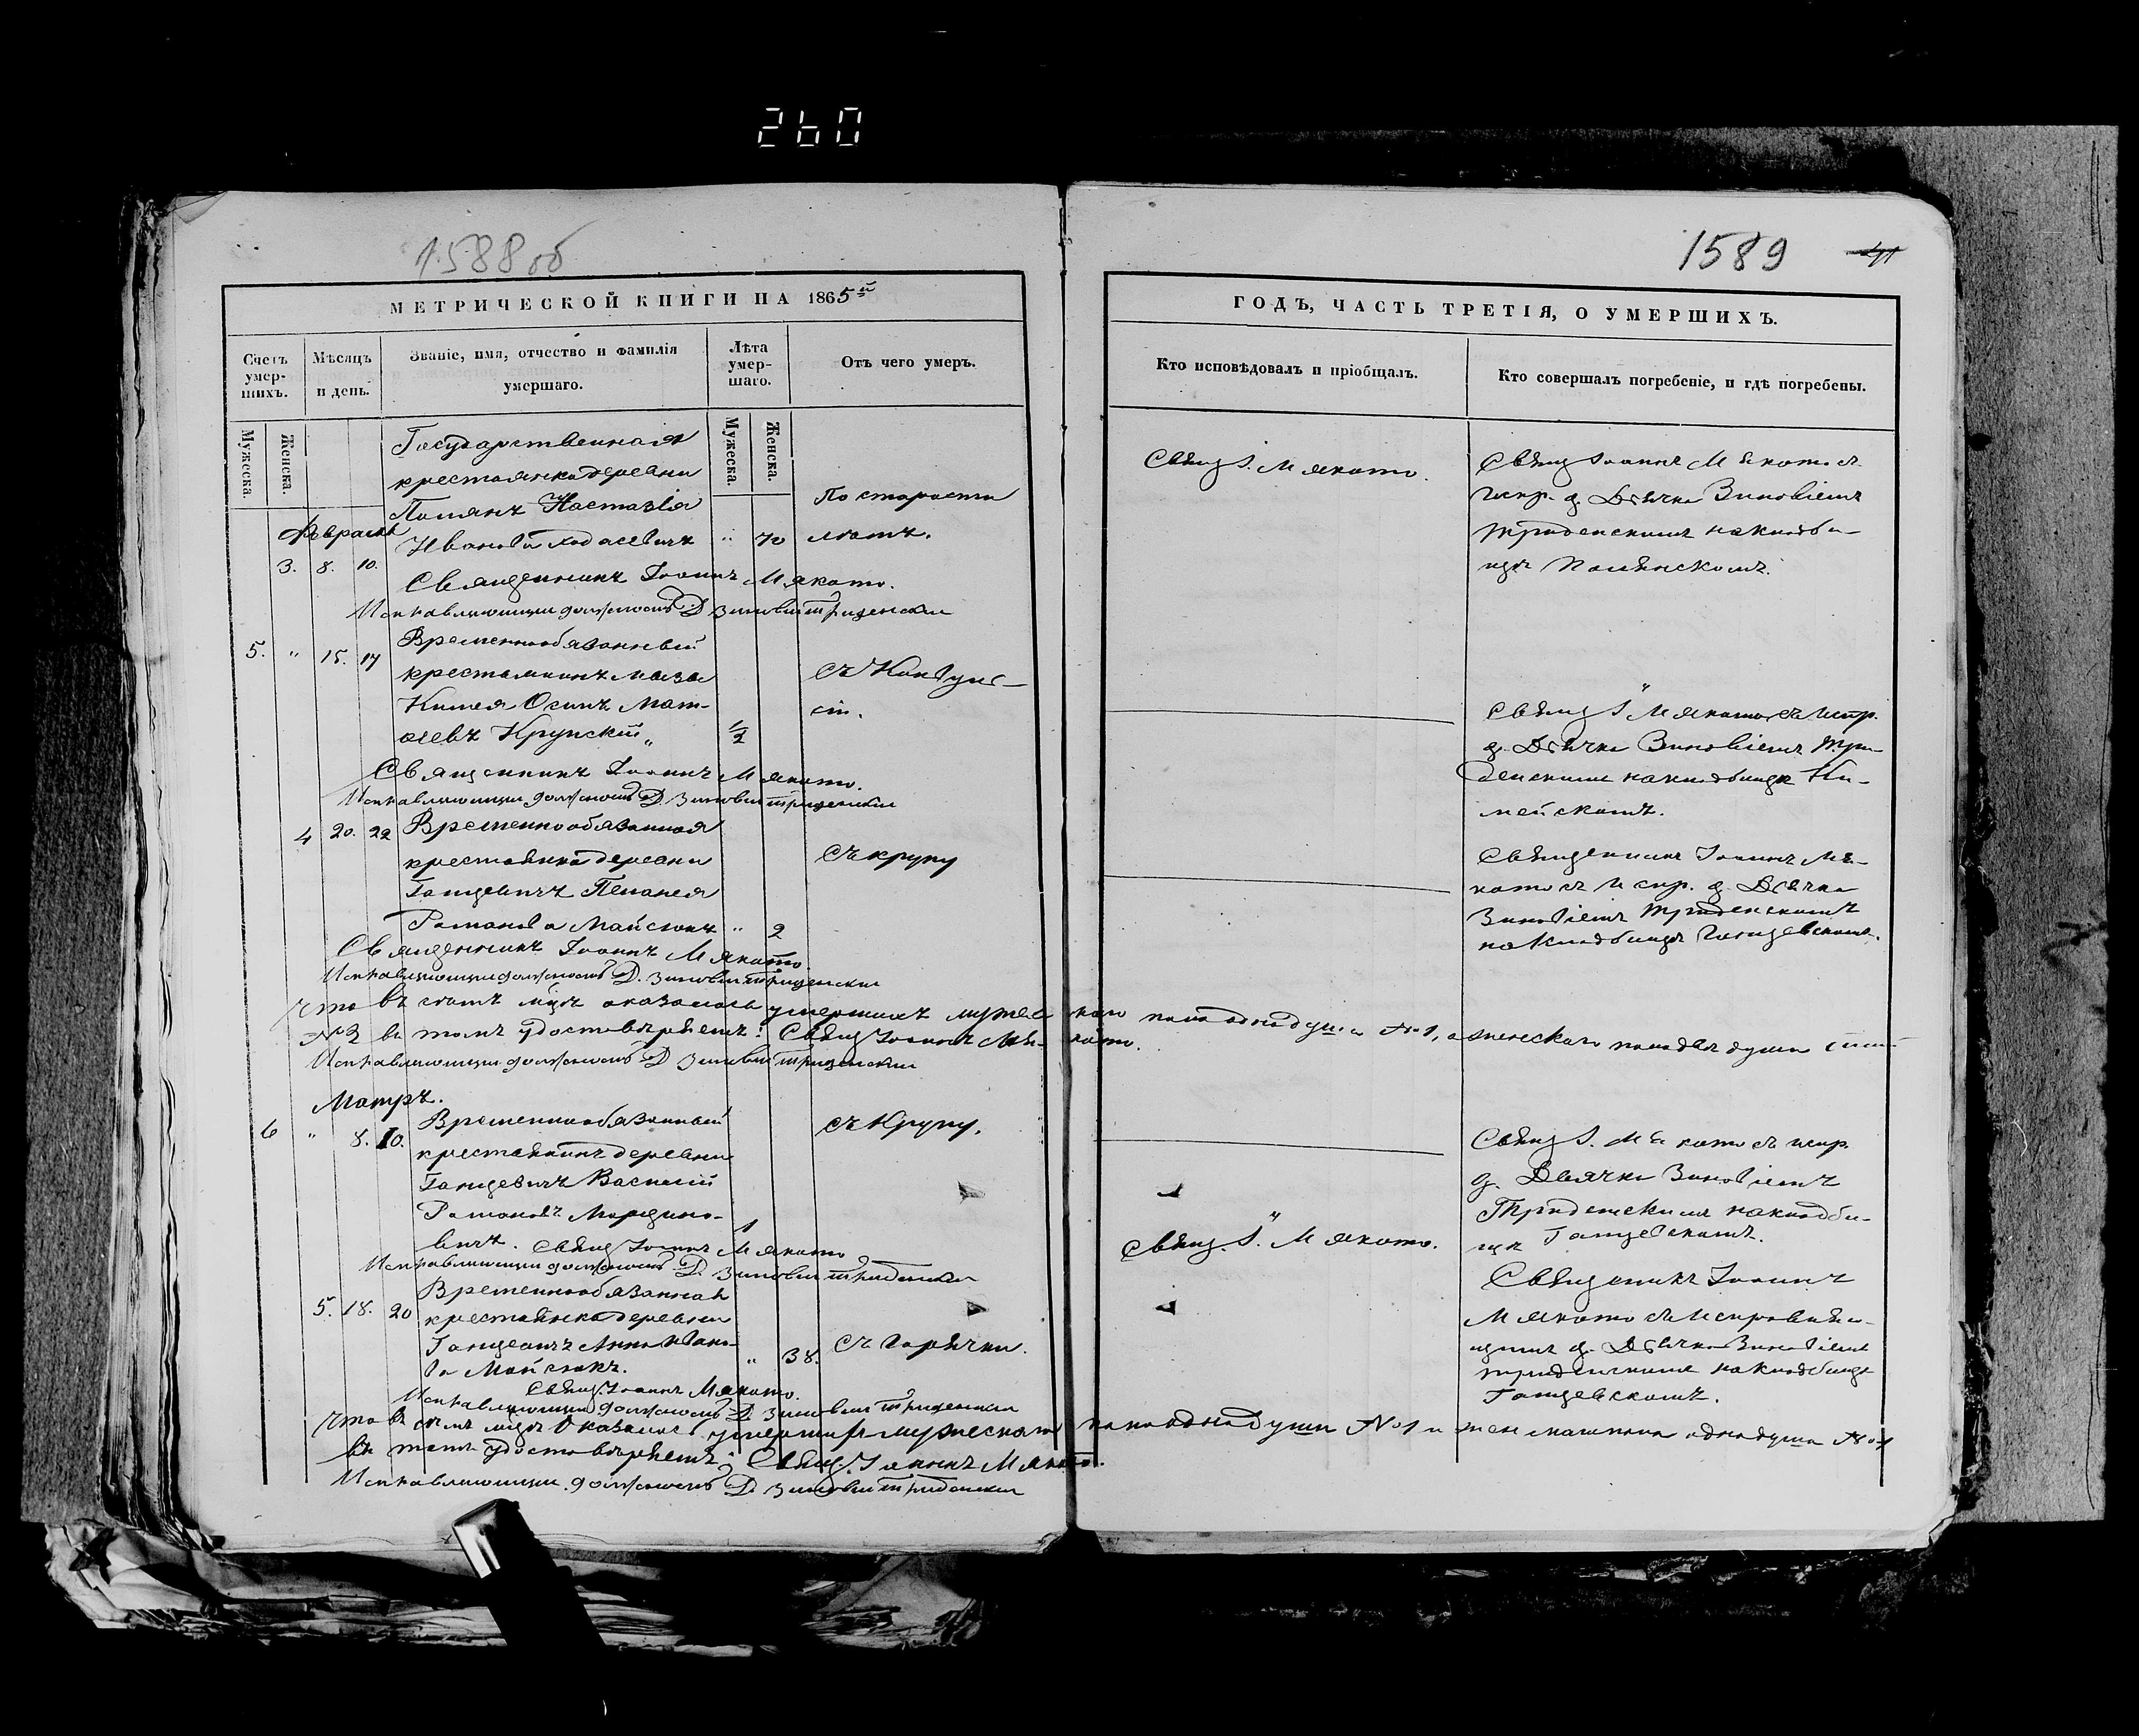 260
1588 об
МЕТРИЧЕСКОЙ КНИГИ НА 1865й
Счетъ умер-шихъ.
Мѣсяцъ и день.
Званіе, имя, отчество и фамилія умершаго.
Лѣта умер-шаго.
Отъ чего умеръ.
Мужеска.
Женска.
Мужеска.
Женска.
Государственная
крестьянка деревни
Настазія
По старости
Февраль
Иванова Ходасевичъ " 70 лѣтъ.
3. 8. 10.
Священникъ Іоаннъ Мякото.
Исправляющи должность Д. Зиновіи Триденски
5. " 15. 17 Временнообязанный
крестьянинъ
Осипъ Мат-
ѳеевъ Крупскій " 1/2
Священникъ Іоаннъ Мякото.
Исправляющи должность Д. Зиновіи Триденски
4 20. 22 Временнообязанная
крестьянка деревни
съ крупу
Ганцевичъ Пелагея
Романова Майсюкъ " 2
Священникъ Іоаннъ Мякото
Исправляющи должность Д. Зиновіи Триденски
Что въ семъ м-цѣ оказалось умершихъ мужескаго пола одна душа №1, а женскаго пола двѣ души
№2 въ томъ удостовѣряемъ: Свящ Іоаннъ Мякото.
Исправляющи должность Д. Зиновіи Триденски
Мартъ.
6 " 8. 10. Временнообязанный
съ Крупу.
крестьянинъ деревни
Ганцевичъ Василій
Романовъ
вичъ. 1
Свящ Іоаннъ Мякото
Исправляющи должность Д. Зиновіи Триденски
Временнообязанная
5. 18. 20 крестьянка деревни
Ганцевичъ Анна Ивано-
ва Майсюкъ. " 38. съ Горячки.
Свящ. Іоаннъ Мякото.
Исправляющи должность Д. Зиновіи Триденски
Что въ семъ м-цѣ оказалось умершихъ мужескаго пола одна душа №1 и женскаго пола одна душа №1
въ томъ удостовѣряемъ: Свящ. Іоаннъ Мякото.
Исправляющи должность Д. Зиновіи Триденски
1589
ГОДЪ, ЧАСТЬ ТРЕТІЯ, О УМЕРШИХЪ.
Кто исповѣдовалъ и пріобщалъ.
Кто совершалъ погребеніе, и гдѣ погребены.
Свящ І. Мякото.
Свящ Іоаннъ Мякото съ
испр. д. Дьячка Зиновіемъ
Триденскимъ на кладби-
щѣ
Свящ І. Мякото съ испр.
д. Дьячка Зиновіемъ Три-
денскимъ на кладбищѣ Ки-
Священникъ Іоаннъ Мя-
кото съ испр. д. Дьячка
Зиновіемъ Триденскимъ
на кладбищѣ Ганцевскомъ.
Свящ І. Мякото съ испр.
д. Дьячка Зиновіемъ
Триденскимъ на кладби-
щѣ Ганцевскомъ.
Свящ. І. Мякото.
Священикъ Іоаннъ
Мякото съ исправляю-
щимъ д. Дьячка Зиновіемъ
Триденскимъ на кладбищѣ
Ганцевскомъ.